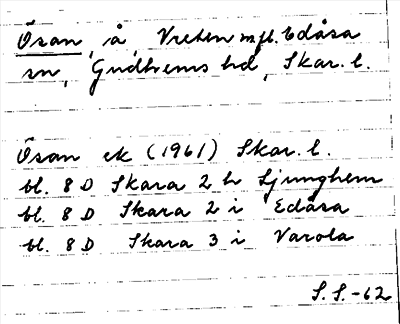 Ösan, å, Vreten m.fl. Edåsa
sn, Gudhems hd, Skar. l.
Ösan ek (1961) Skar. l.
bl. 8 D Skara 2 h Ljunghem
bl. 8 D Skara 2 i Edåsa
bl. 8 D Skara 3 i Varola
S. S. -62